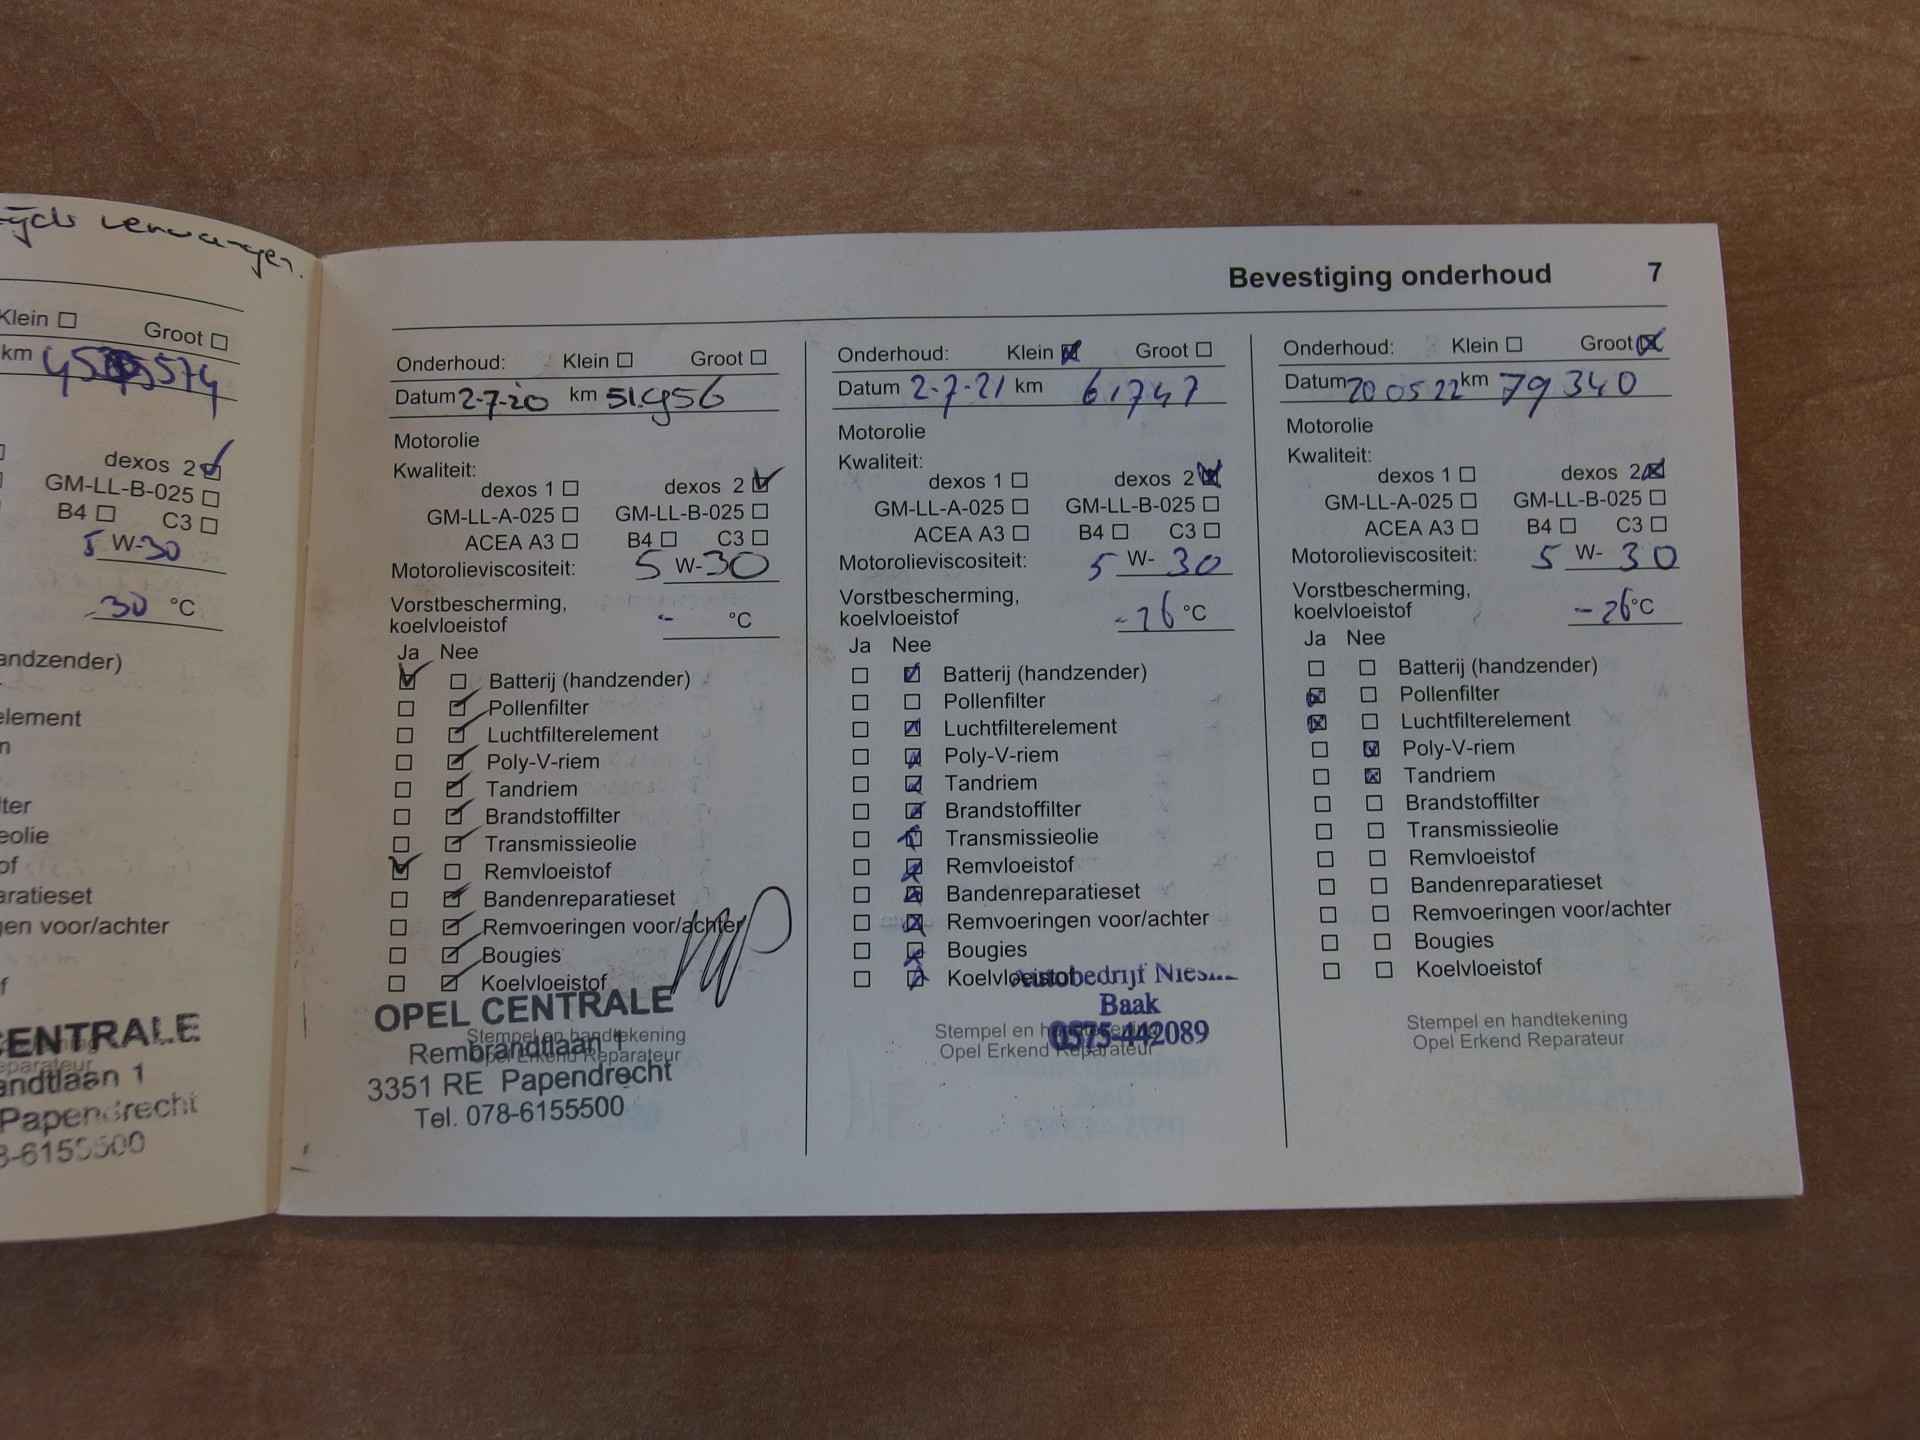 verwangen.
Klein Groot
km
dexos 2
GM-LL-B-025
B4 C3
5 W-30
-30 °C
andzender)
element
n
lter
eolie
of
aratieset
gen voor/achter
f
CENTRALE
andtlaan 1
Papendrecht
8-6155500
Bevestiging onderhoud 7
Onderhoud: Klein Groot
Datum 2-7-20 km 51.956
Motorolie
Kwaliteit:
dexos 1 dexos 2
GM-LL-A-025 GM-LL-B-025
ACEA A3 B4 C3
Motorolieviscositeit: 5 W-30
Vorstbescherming,
koelvloeistof - °C
Ja Nee
Batterij (handzender)
Pollenfilter
Luchtfilterelement
Poly-V-riem
Tandriem
Brandstoffilter
Transmissieolie
Remvloeistof
Bandenreparatieset
Remvoeringen voor/achter
Bougies
Koelvloeistof
OPEL CENTRALE
Stempel en handtekening
Rembrandtlaan 1
Opel Erkend Reparateur
3351 RE Papendrecht
Tel. 078-6155500
Onderhoud: Klein Groot
Datum 2-7-21 km 61747
Motorolie
Kwaliteit:
dexos 1 dexos 2
GM-LL-A-025 GM-LL-B-025
ACEA A3 B4 C3
Motorolieviscositeit: 5 W- 30
Vorstbescherming,
koelvloeistof -26 °C
Ja Nee
Batterij (handzender)
Pollenfilter
Luchtfilterelement
Poly-V-riem
Tandriem
Brandstoffilter
Transmissieolie
Remvloeistof
Bandenreparatieset
Remvoeringen voor/achter
Bougies
Koelvloeistof
Autobedrijf
Baak
Stempel en handtekening
0575-442089
Opel Erkend Reparateur
Onderhoud: Klein Groot
Datum 20 05 22 km 79340
Motorolie
Kwaliteit:
dexos 1 dexos 2
GM-LL-A-025 GM-LL-B-025
ACEA A3 B4 C3
Motorolieviscositeit: 5 W- 30
Vorstbescherming,
koelvloeistof -26 °C
Ja Nee
Batterij (handzender)
Pollenfilter
Luchtfilterelement
Poly-V-riem
Tandriem
Brandstoffilter
Transmissieolie
Remvloeistof
Bandenreparatieset
Remvoeringen voor/achter
Bougies
Koelvloeistof
Stempel en handtekening
Opel Erkend Reparateur